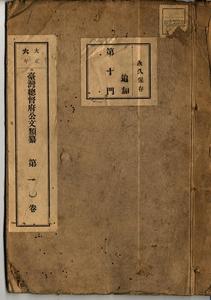 永久保存
追加
第十門
大正
六年
臺灣總督府公文類纂
第一〇卷